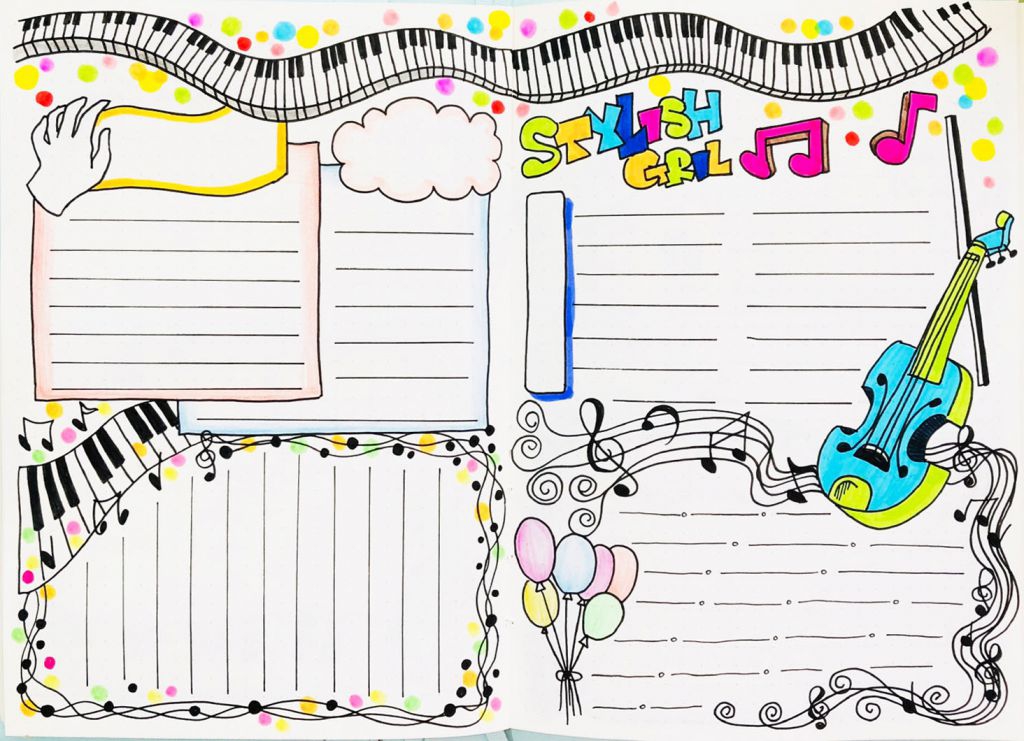 STYLISH
GRIL